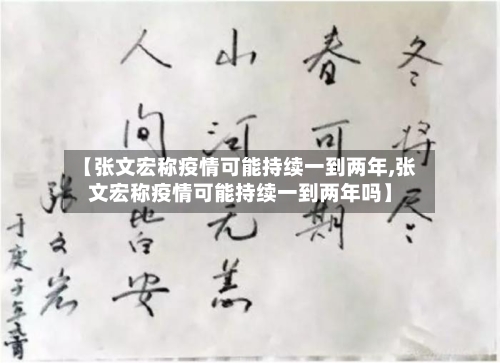 冬将尽
春可期
山河无恙
人间皆安
张文宏
于庚子年
【张文宏称疫情可能持续一到两年,张
文宏称疫情可能持续一到两年吗】